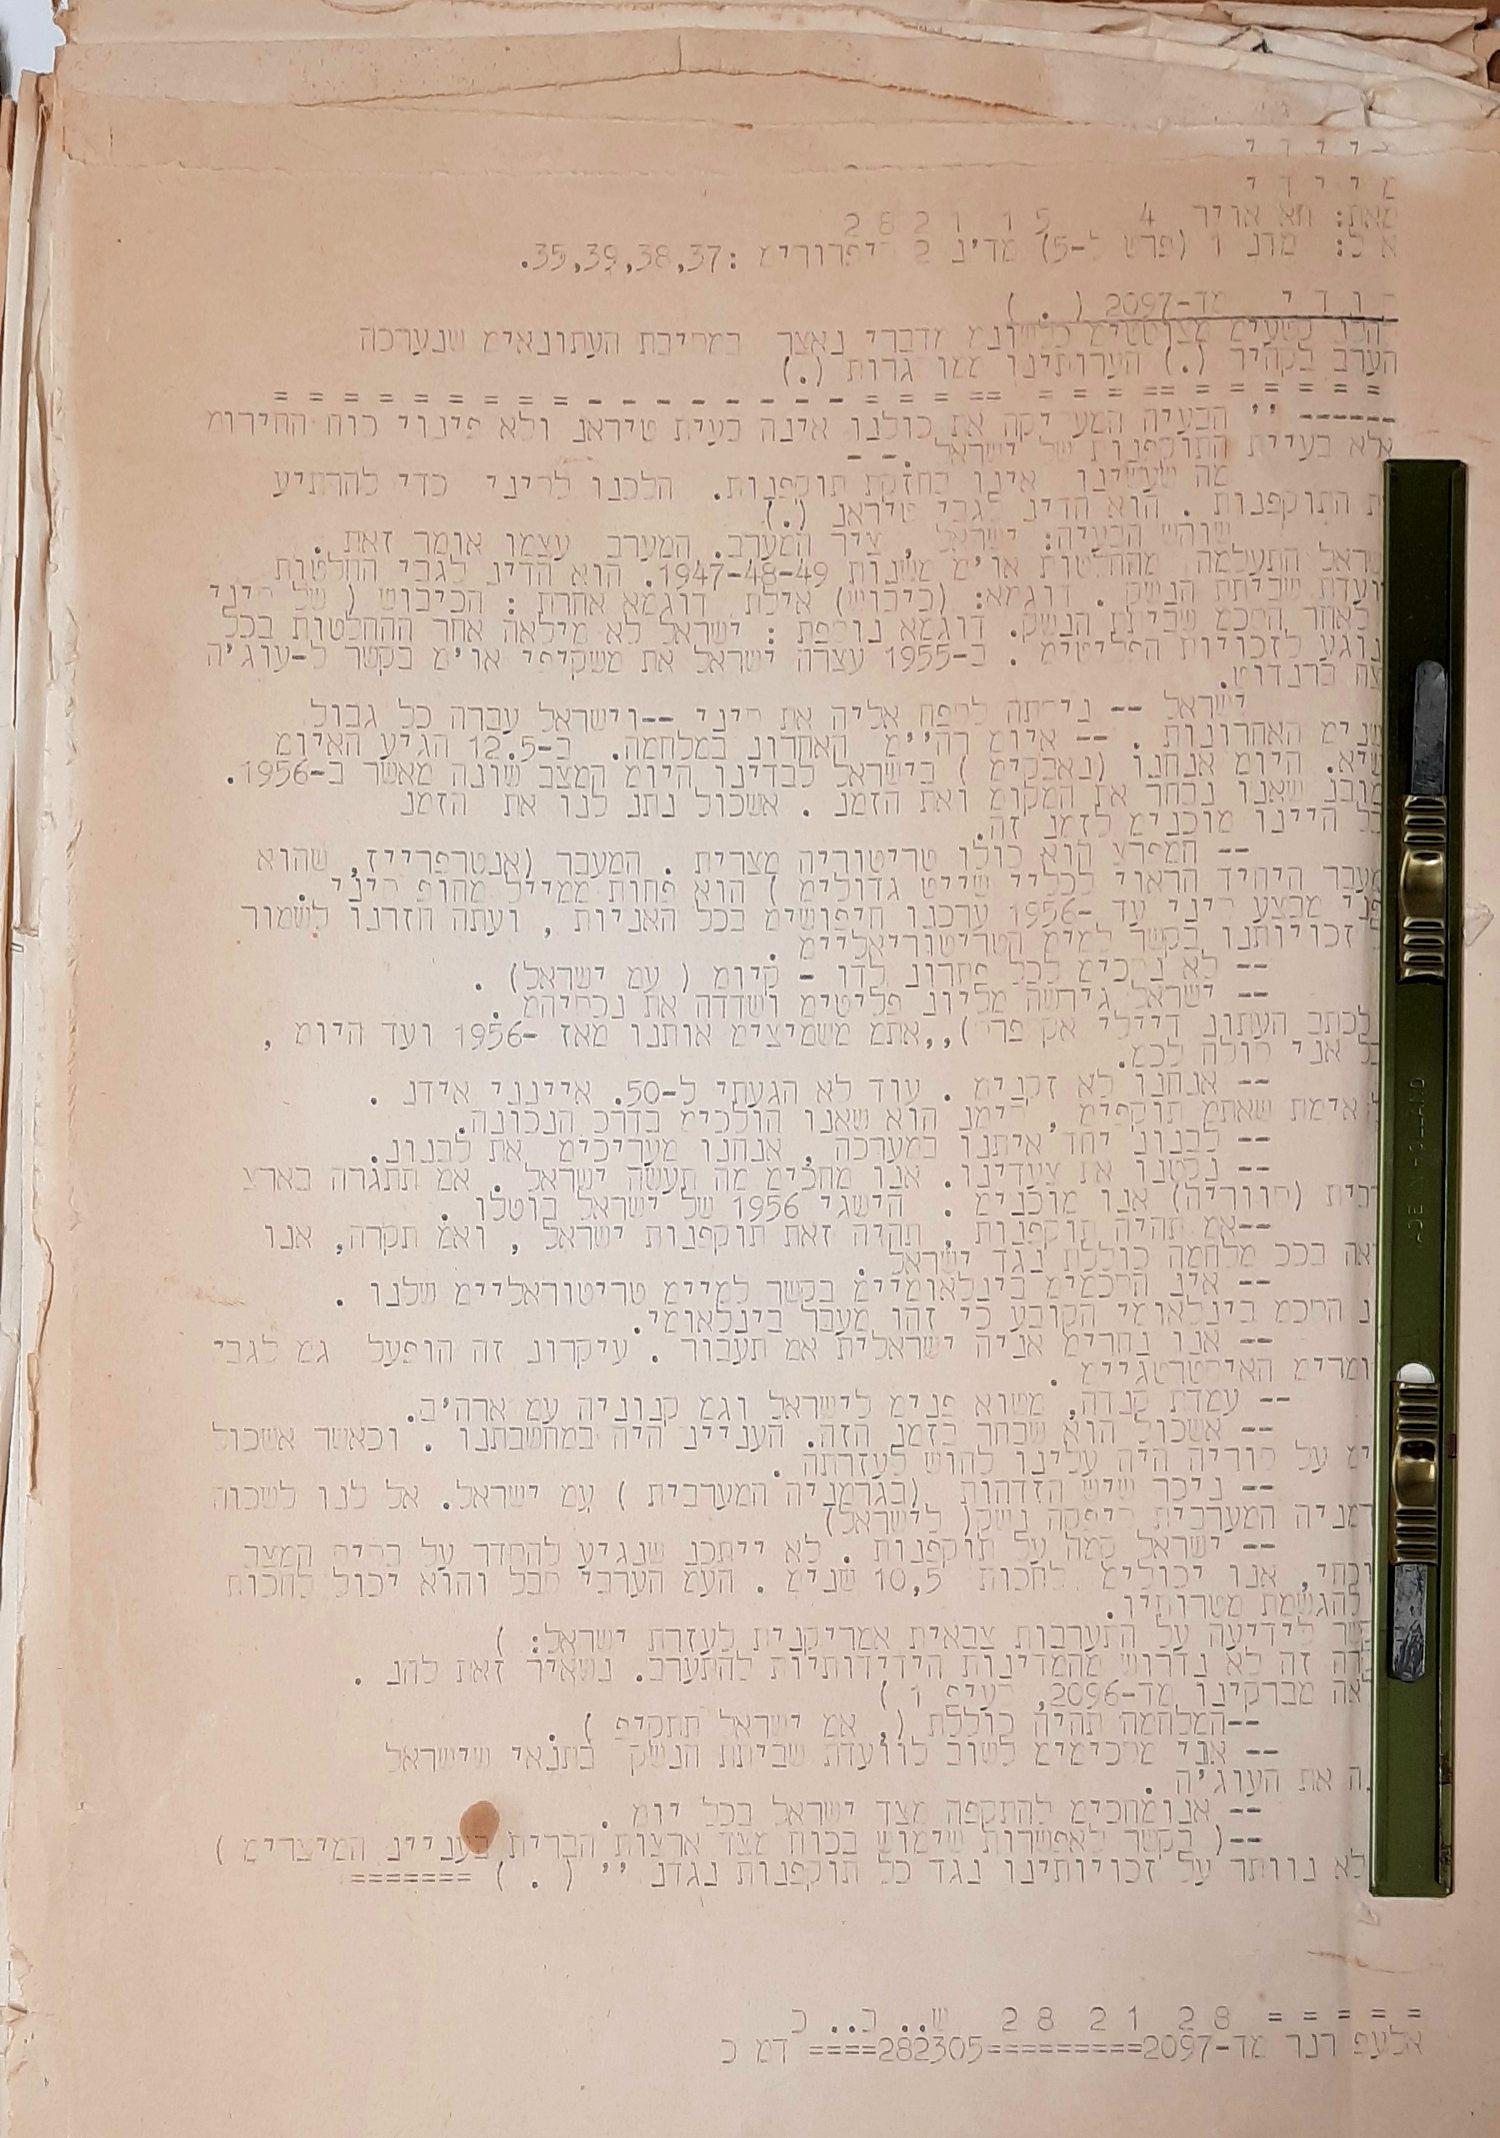 מ י י ד י
מ י י ד י
מאת: חא אויר 4 15 21 28
א ל: מדנ 1 (פרט ל-5) מד'נ 2 סיפרורימ :35,39,38,37.
ס ו ד י מד-2097 ( . )
להלנ קטעימ מצוטטימ כלשונמ מדברי נאצר במסיבת העתונאימ שנערכה
הערב בקהיר (.) הערותינו ממו גרות (.)
= = = = = = = = = = = = - - - - - - - - - = = = = = = = = = =
------ '' הבעיה המעסיקה את כולנו אינה בעית טיראנ ולא פינוי כוח החירומ
אלא בעיית התוקפנות של ישראל .--
מה שעשינו אינו בחזקת תוקפנות. הלכנו לסיני כדי להרתיע
את התוקפנות . הוא הדינ לגבי טיראנ (.)
שורש הבעיה: ישראל , ציר המערב. המערב עצמו אומר זאת .
שראל התעלמה מהחלטות או'מ משנות 1947-48-49. הוא הדינ לגבי החלטות
ועדת שביתת הנשק . דוגמא: (כיבוש) אילת דוגמא אחרת : הכיבוש ( של סיני
לאחר הסכמ שביתת הנשק. דוגמא נוספת : ישראל לא מילאה אחר ההחלטות בכל
נוגע לזכויות הפליטימ . ב-1955 עצרה ישראל את משקיפי או'מ בקשר ל-עוג'ה
צח ברנדוט.
ישראל -- ניסתה לספח אליה את סיני --וישראל עברה כל גבול
שנימ האחרונות . -- איומ רה''מ האחרונ במלחמה. ב-12.5 הגיע האיומ
שיא. היומ אנחנו (נאבקימ ) בישראל לבדינו היומ המצב שונה מאשר ב-1956.
מובנ שאנו נבחר את המקומ ואת הזמנ . אשכול נתנ לנו את הזמנ
בל היינו מוכנימ לזמנ זה.
-- המפרצ הוא כולו טריטוריה מצרית . המעבר (אנטרפרייז, שהוא
מעבר היחיד הראוי לכליי שייט גדולימ ) הוא פחות ממייל מחופ סיני .
פני מבצע סיני עד -1956 ערכנו חיפושימ בכל האניות , ועתה חזרנו לשמור
זכויותנו בקשר למימ הטריטוריאליימ .
-- לא נסכימ לכל פתרונ לדו - קיומ ( עמ ישראל) .
-- ישראל גירשה מליונ פליטימ ושדדה את נכסיהמ .
לכתב העתונ דיילי אקספרס ),,אתמ משמיצימ אותנו מאז -1956 ועד היומ ,
בל אני סולח לכמ.
-- אנחנו לא זקנימ . עוד לא הגעתי ל-50. אינני אידנ .
ל אימת שאתמ תוקפימ , סימנ הוא שאנו הולכימ בדרכ הנכונה.
-- לבנונ יחד איתנו במערכה , אנחנו מעריכימ את לבנונ.
-- נקטנו את צעדינו. אנו מחכימ מה תעשה ישראל . אמ תתגרה בארצ
רבית (סווריה) אנו מוכנימ . הישגי 1956 של ישראל בוטלו .
--אמ תהיה תוקפנות , תהיה זאת תוקפנות ישראל , ואמ תקרה, אנו
אה בככ מלחמה כוללת נגד ישראל .
-- אינ הסכמימ בינלאומיימ בקשר למיימ טריטוראליימ שלנו .
נ הסכמ בינלאומי הקובע כי זהו מעבר בינלאומי.
-- אנו נחרימ אניה ישראלית אמ תעבור . עיקרונ זה הופעל גמ לגבי
ומרימ האיסטרטגיימ .
-- עמדת קנדה, משוא פנימ לישראל וגמ קנוניה עמ ארה'ב.
-- אשכול הוא שבחר בזמנ הזה. העניינ היה במחשבתנו . וכאשר אשכול
ימ על סוריה היה עלינו לחוש לעזרתה .
-- ניכר שיש הזדהות (בגרמניה המערבית ) עמ ישראל. אל לנו לשכוח
רמניה המערבית סיפקה נשק( לישראל)
-- ישראל קמה על תוקפנות . לא ייתכנ שנגיע להסדר על בסיס המצב
וכחי, אנו יכולימ לחכות 10,5 שנימ . העמ הערבי סבל והוא יכול לחכות
להגשמת מטרותיו.
קשר לידיעה על התערבות צבאית אמריקנית לעזרת ישראל: )
דה זה לא נדרוש מהמדינות הידידותיות להתערב. נשאיר זאת להנ .
אה מברקינו מד-2096, סעיפ 1 )
--המלחמה תהיה כוללת (, אמ ישראל תתקיפ ) .
-- אני מסכימימ לשוב לוועדת שביתת הנשק בתנאי שישראל
נה את העוג'ה .
-- אנומחכימ להתקפה מצד ישראל בכל יומ .
--( בקשר לאפשרות שימוש בכוח מצד ארצות הברית בענייני המיצרימ )
לא נוותר על זכויותינו נגד כל תוקפנות נגדנ '' ( . ) =======
= = = = = 28 21 28 ש.. ב.. כ
אלעפ רנר מד-2097=========282305==== דמ כ